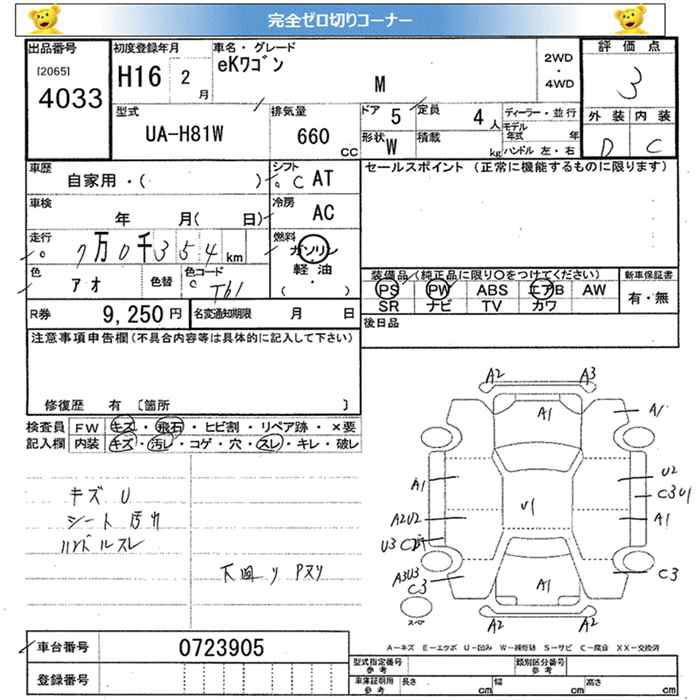 完全ゼロ切りコーナー
出品番号 初度登録年月 車名・グレード 2WD・4WD 評価点
[2065] 4033 H16 2月 eKワゴン M 3
型式 排気量 ドア 5 定員 4人 ディーラー・並行 外装 内装
UA-H81W 660cc 形状 W 積載 kg モデル年式 年 D C
ハンドル 左・右
車歴 シフト セールスポイント (正常に機能するものに限ります)
自家用・( ) C AT
車検 年 月( 日) 冷房 AC
走行 7万0千354km 燃料 ガソリン
軽油
( ・ )
色 アオ 色替 色コード T61 装備品(純正品に限り○をつけてください) 新車保証書
PS PW ABS エアB AW 有・無
SR ナビ TV カワ
R券 9,250円 名変通知期限 月 日 後日品
注意事項申告欄(不具合内容等は具体的に記入して下さい)
修復歴 有 〔箇所 〕
検査員 FW キズ・飛石・ヒビ割・リペア跡・×要
記入欄 内装 キズ・汚レ・コゲ・穴・スレ・キレ・破レ
キズ U
シート 汚れ
ハンドルスレ
下回り Pヌリ
A2 A3
A1 A1
A1 U2
C3 U1
U1
A2U2 A1
U3
A3U3 C3
C3 A1
スペア A2 A2
A-キズ E-エクボ U-凹み W-補修跡 S-サビ C-腐食 XX-交換済
車台番号 0723905
登録番号
型式指定番号 参考 類別区分番号 参考
車庫証明用 参考 長さ cm 幅 cm 高さ cm